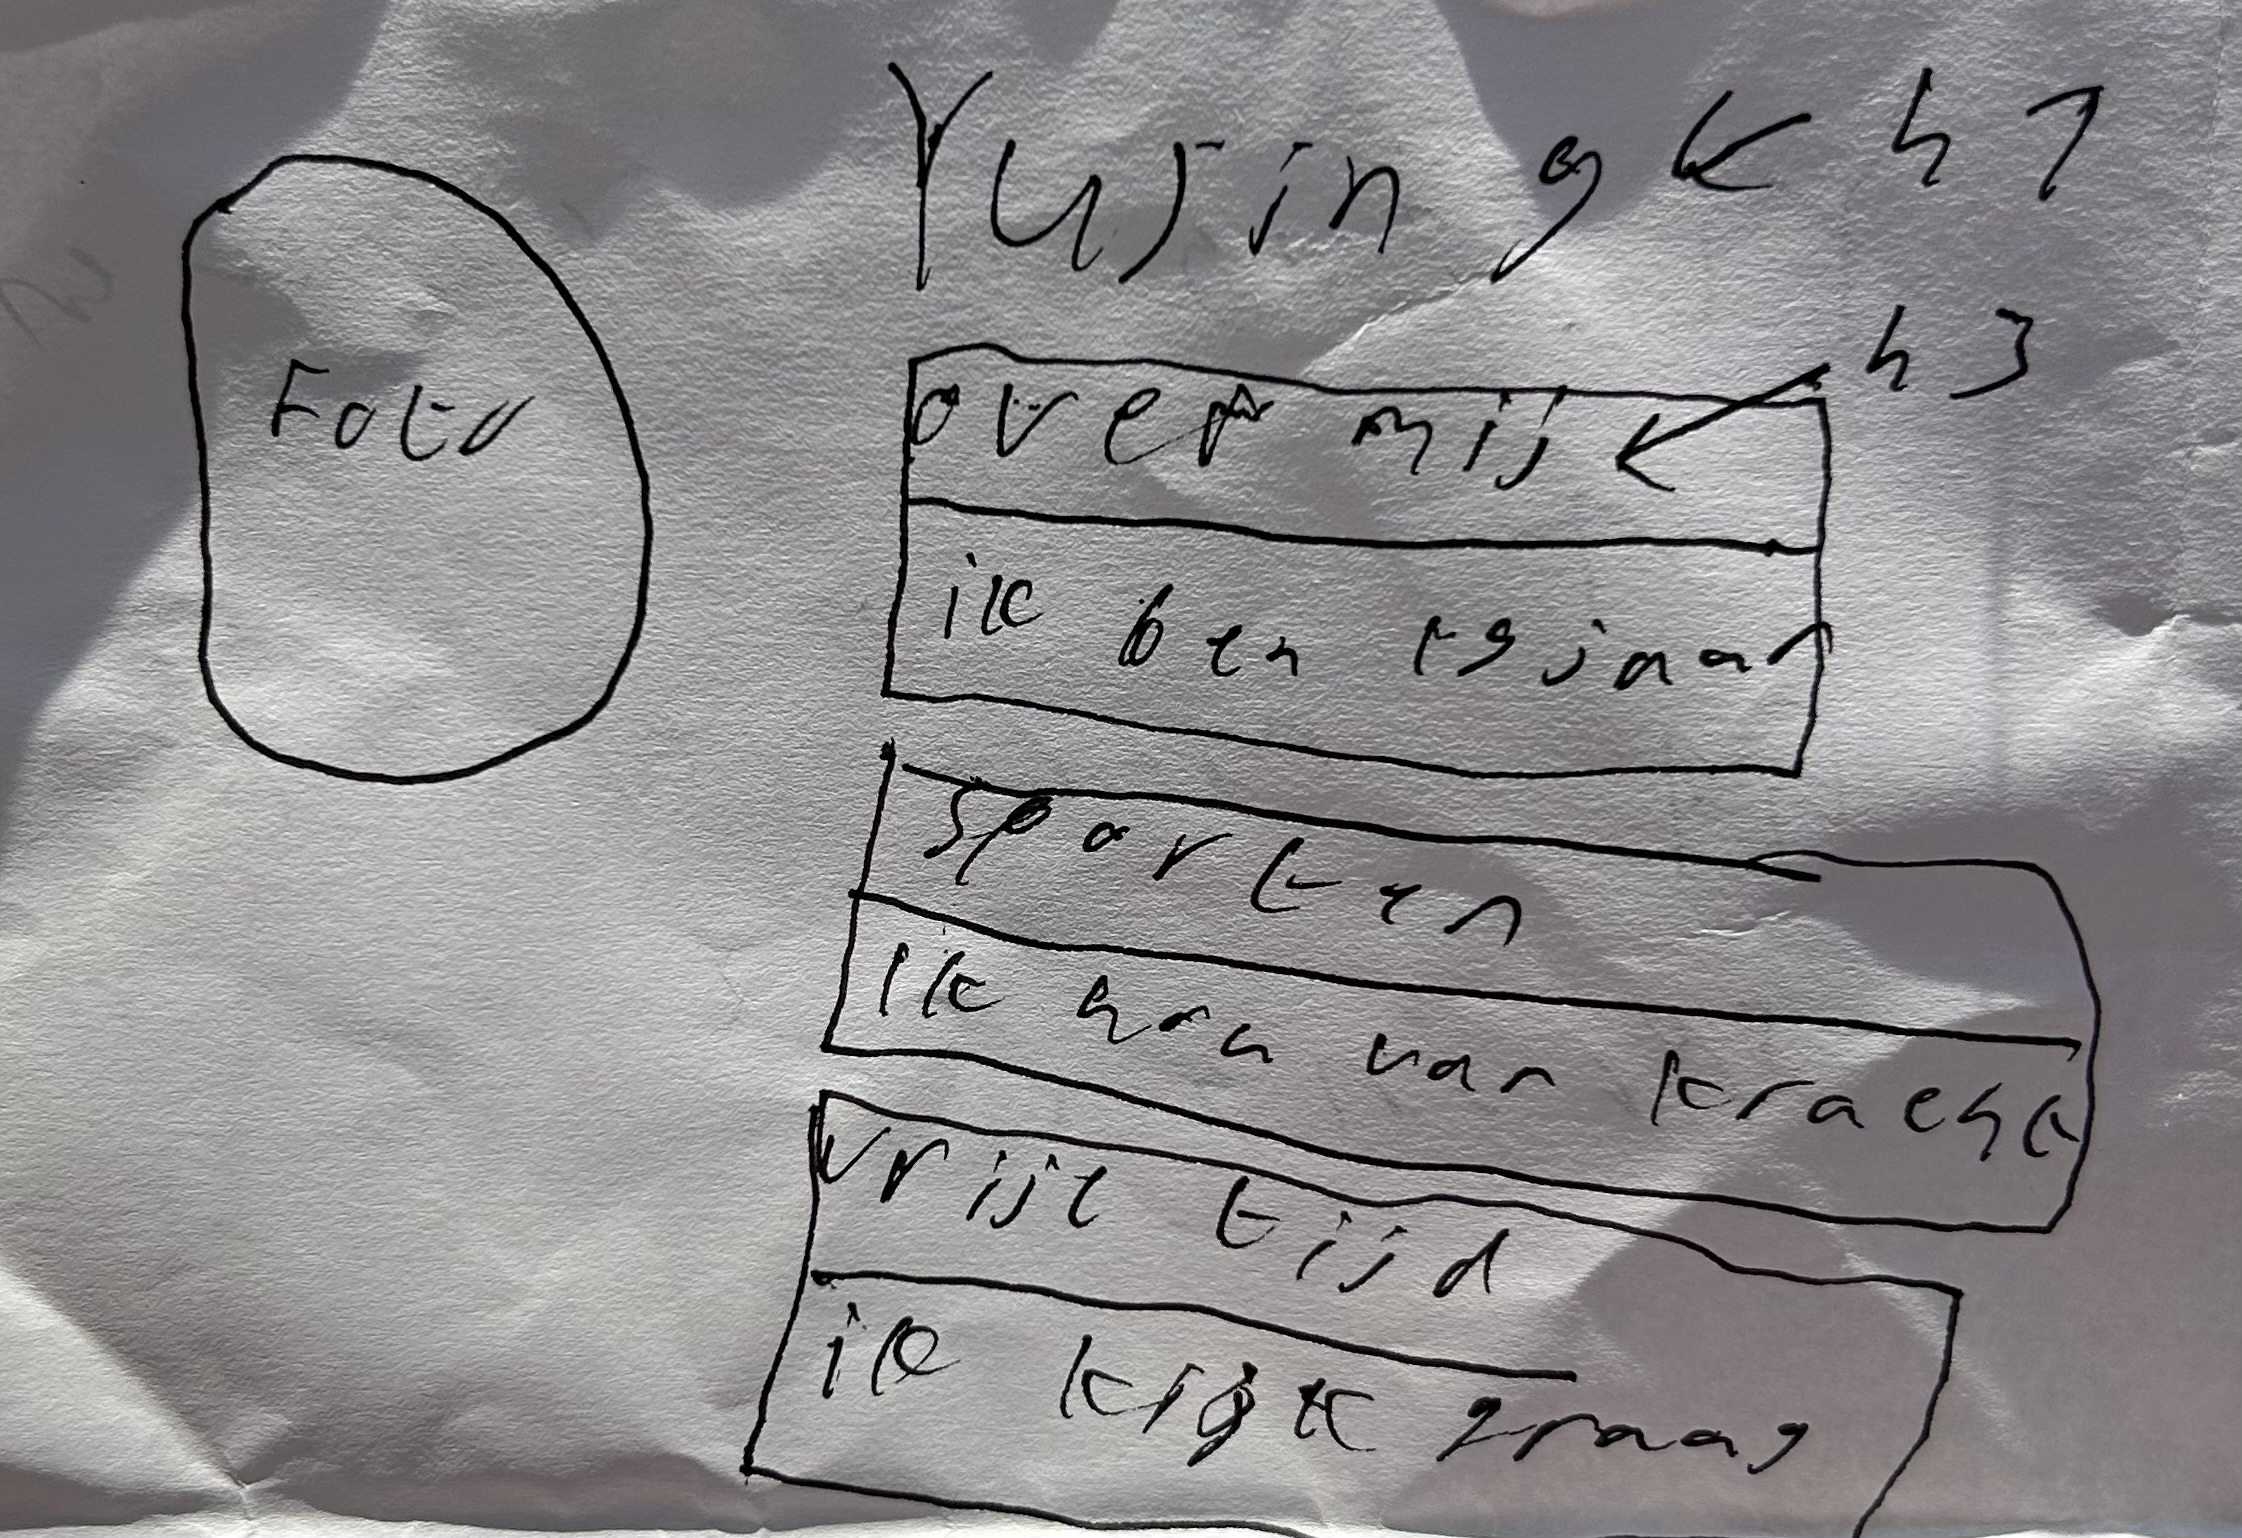 Yujing ← h1
Foto
h3
over mij
ik ben 19 jaar
Sporten
Ik hou van kracht
vrije tijd
ik kijk graag